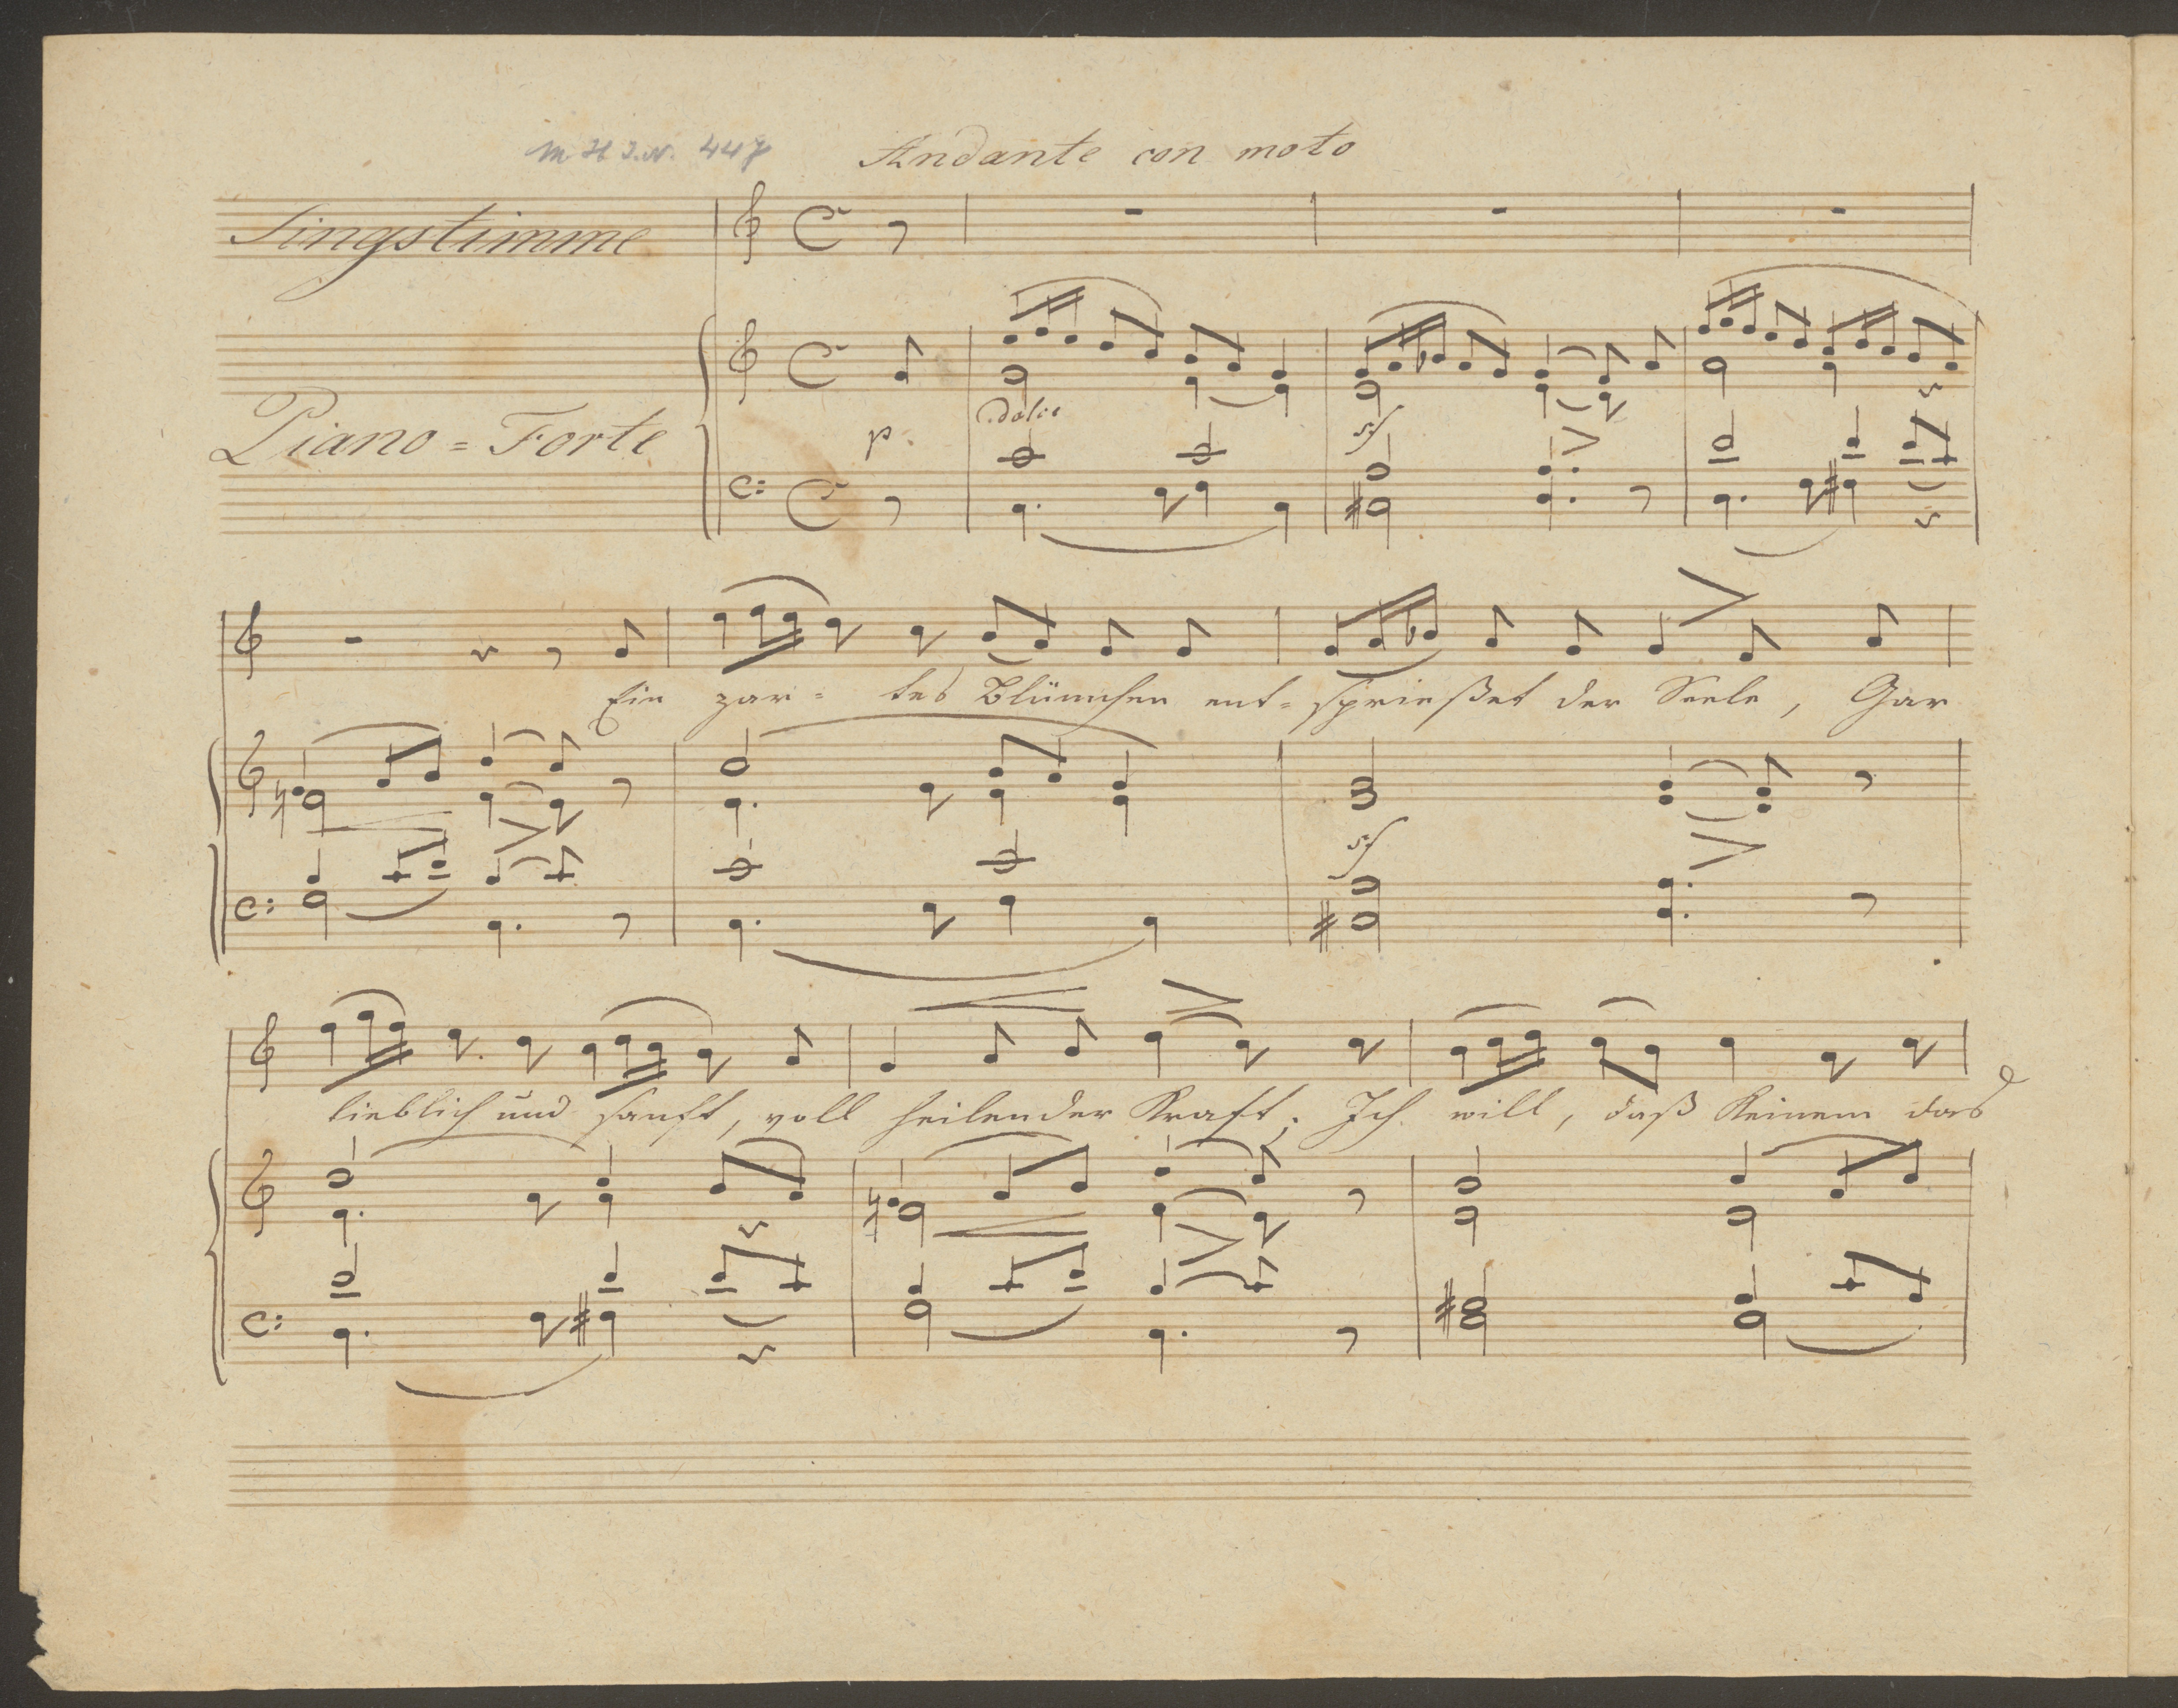 M H I.N. 447
Andante con moto
Singstimme
Piano=Forte
p
dolce
sf
Ein zar= tes Blümchen ent=sprießet der Seele, Gar
sf
lieblich und sanft, voll heilender Kraft; Ich will, daß Keinem das